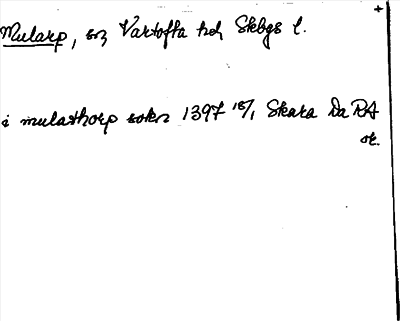 Mularp, sn Vartofta hd Skbgs l.
i mulathorp sokn 1397 18/1 Skara Da RA
or.